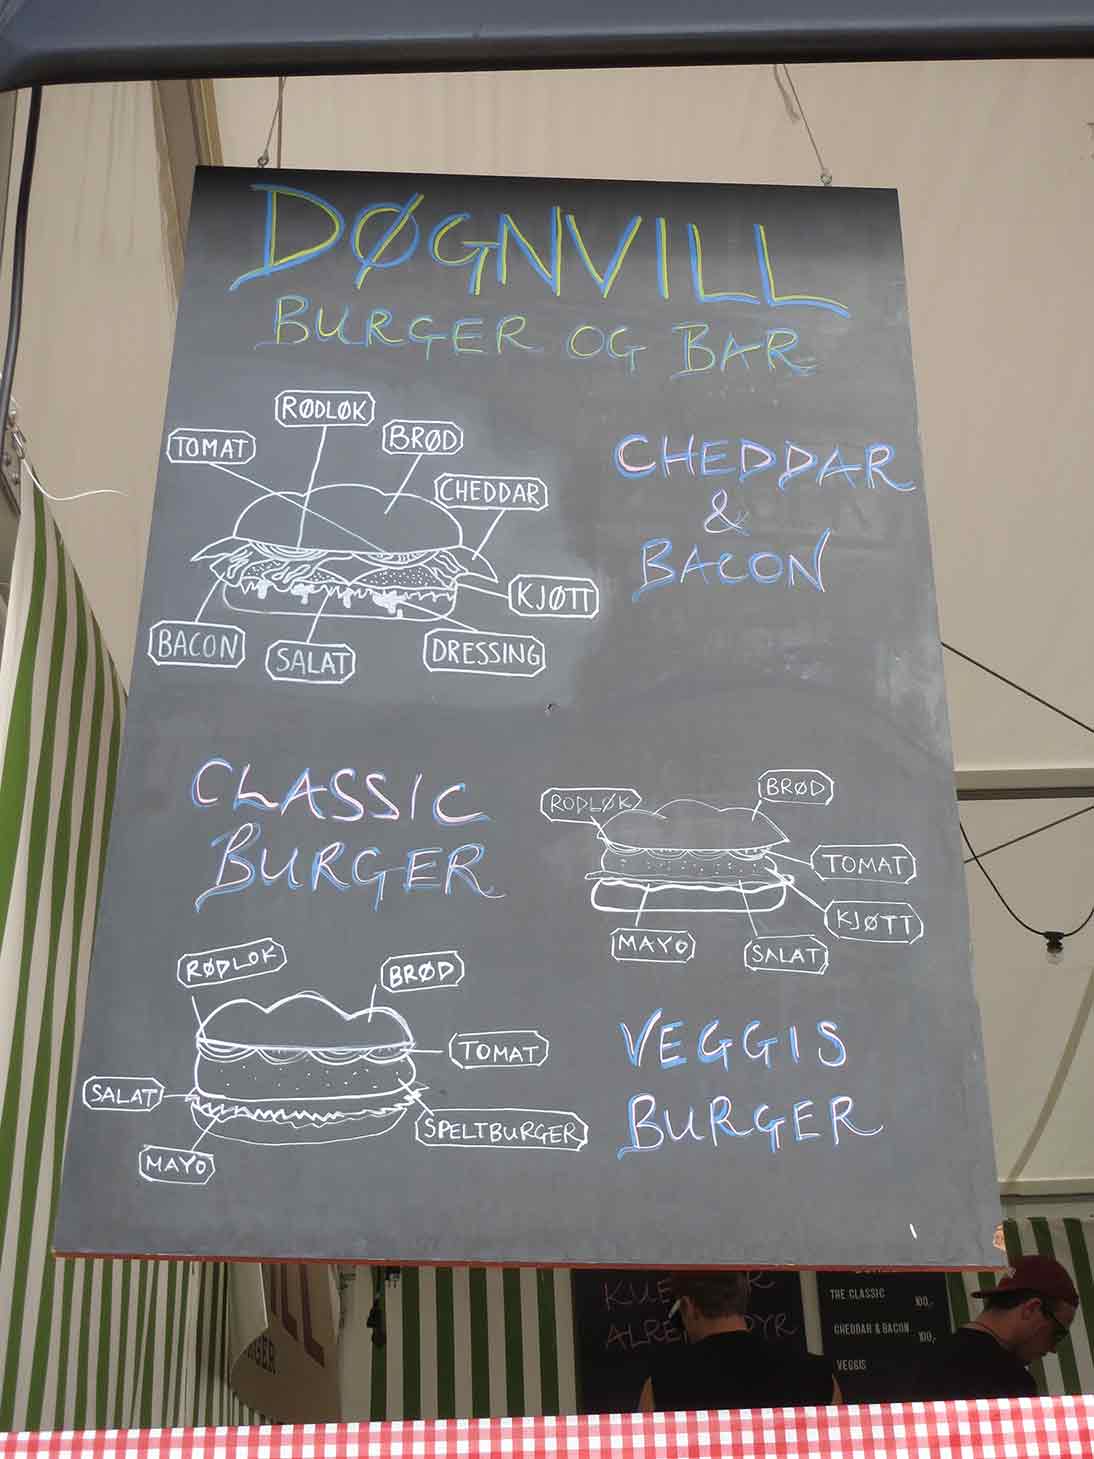 DØGNVILL
BURGER OG BAR
RØDLØK
TOMAT
BRØD
CHEDDAR
KJØTT
BACON
SALAT
DRESSING
CHEDDAR
&
BACON
CLASSIC
BURGER
RODLØK
BRØD
TOMAT
KJØTT
MAYO
SALAT
RØDLOK
BRØD
TOMAT
SALAT
SPELTBURGER
MAYO
VEGGIS
BURGER
THE CLASSIC 100,-
CHEDDAR & BACON 100,-
VEGGIS